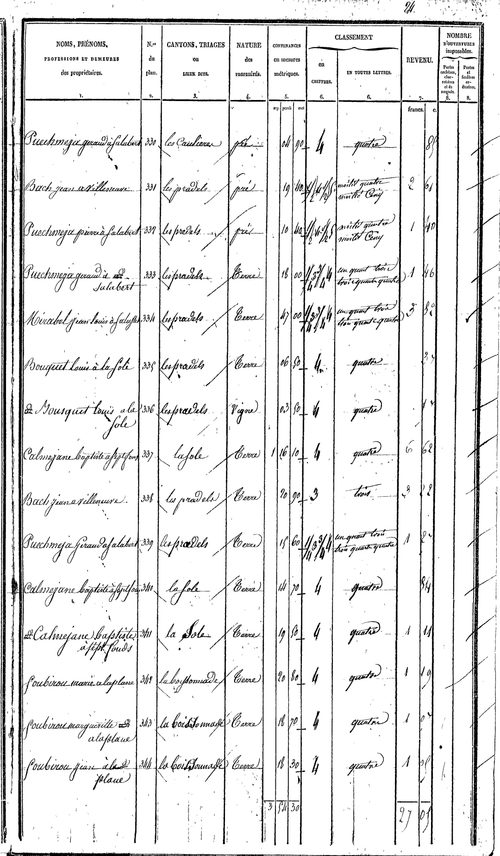 24
NOMS, PRÉNOMS,
PROFESSIONS ET DEMEURES
des propriétaires.
N.os
du
plan.
CANTONS, TRIAGES
ou
LIEUX DITS.
NATURE
des
CONTENANCES
en mesures
métriques.
CLASSEMENT
en
CHIFFRES.
EN TOUTES LETTRES.
REVENU.
NOMBRE
D'OUVERTURES
imposables.
1. 2. 3. 4. 5. 6. 6. 7. 8. 8.
francs. c.
Puechmeja giraud à Salabert 330 les Caulieres pré 04 90 4 quatre 85
Bach jean a villeneuve 331 les pradels pré 19 40 1/2 4 1/2 5 moitié quatre 2 61
moitié Cinq
Puechmeja pierre à Salabert 332 les pradels pré 10 40 1/2 4 1/2 5 moitié quatre 1 40
moitié Cinq
Puechmeja giraud à 333 les pradels Terre 18 00 1/4 3 3/4 4 un quart trois 1 46
Salabert trois quarts quatre
Mirabel jean louis à 334 les pradels Terre 47 00 1/4 3 3/4 4 un quart trois 3 82
trois quarts quatre
Bousquet louis à la Sole 335 les pradels Terre 06 50 4 quatre
Bousquet louis a la 336 les pradels Vigne 03 50 4 quatre
Sole
Calmejane baptiste à sept fons 337 la Sole Terre 1 26 10 4 quatre 6 62
Bach jean a villeneuve 338 les pradels Terre 20 90 3 trois 3 22
Puechmeja Giraud a Salabert 339 les pradels Terre 15 60 1/4 3 3/4 4 un quart trois 1 27
trois quarts quatre
Calmejane baptiste à sept fons 340 la Sole Terre 14 70 4 quatre 84
Calmejane baptiste 341 la Sole Terre 19 50 4 quatre 1 11
à sept fonds
Soubirou marie a laplane 342 la boissonnade Terre 20 80 4 quatre 1 19
Soubirou marguerite 343 la boissonnade Terre 18 70 4 quatre 1 07
a laplane
Soubirou jean à la 344 la boissonnade Terre 18 30 4 quatre 1 05
plane
3 54 30
27 05